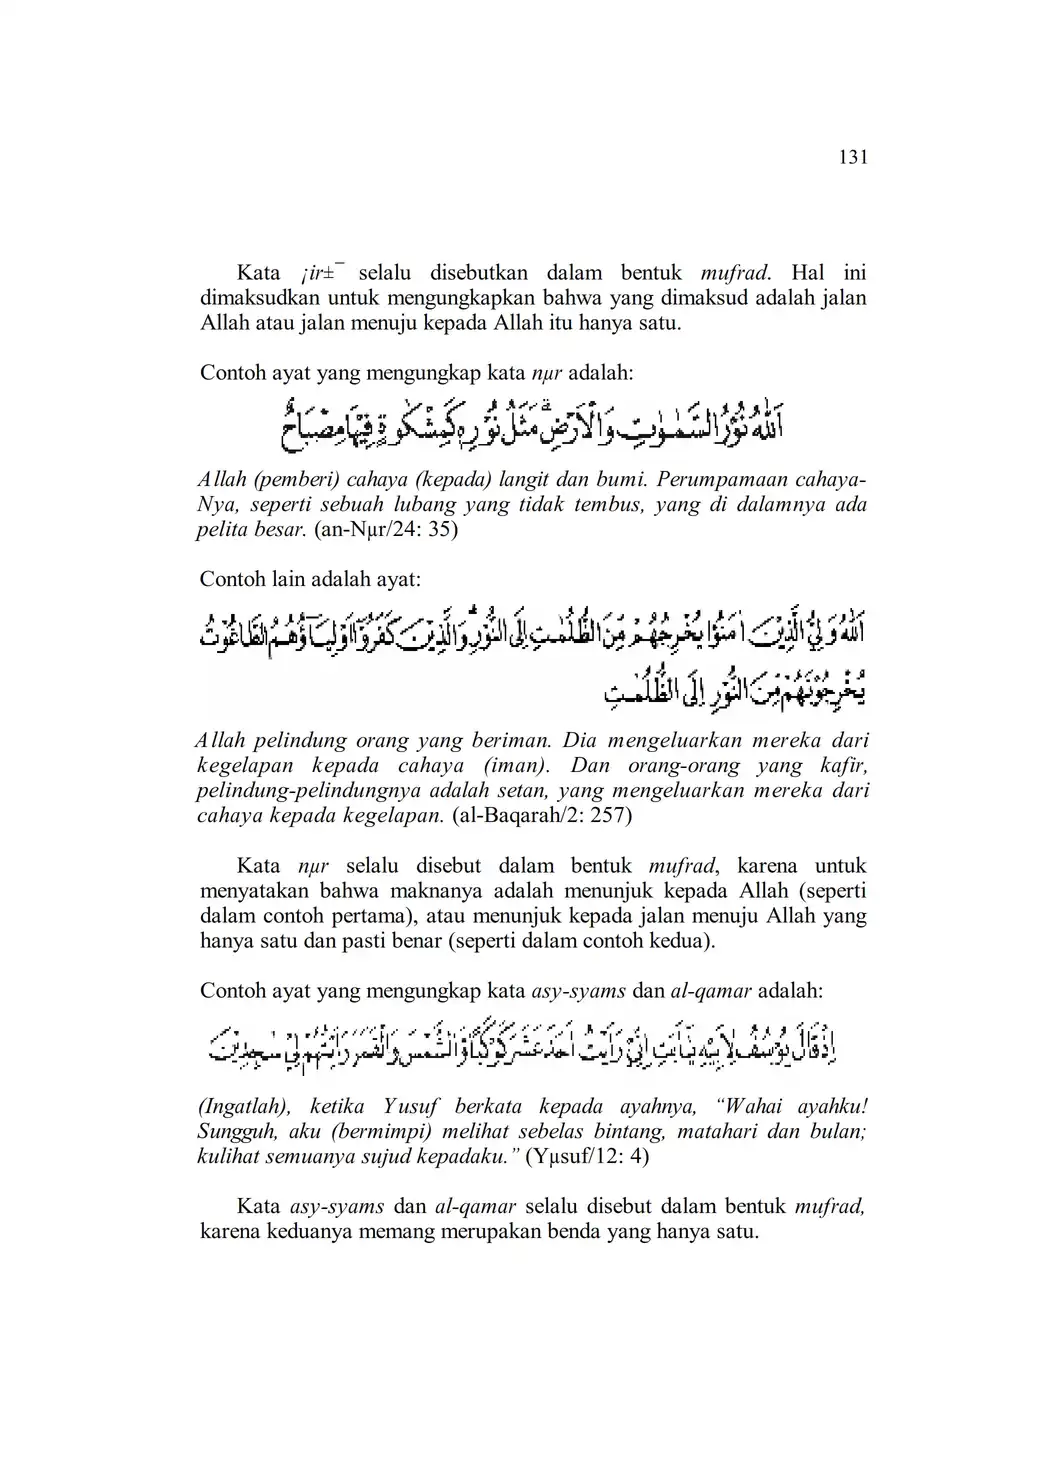 131
Kata ¡ir±¯ selalu disebutkan dalam bentuk mufrad. Hal ini
dimaksudkan untuk mengungkapkan bahwa yang dimaksud adalah jalan
Allah atau jalan menuju kepada Allah itu hanya satu.
Contoh ayat yang mengungkap kata nµr adalah:
اَللّٰهُ نُوْرُ السَّمٰوٰتِ وَالْاَرْضِۗ مَثَلُ نُوْرِهٖ كَمِشْكٰوةٍ فِيْهَا مِصْبَاحٌۗ
Allah (pemberi) cahaya (kepada) langit dan bumi. Perumpamaan cahaya-
Nya, seperti sebuah lubang yang tidak tembus, yang di dalamnya ada
pelita besar. (an-Nµr/24: 35)
Contoh lain adalah ayat:
اَللّٰهُ وَلِيُّ الَّذِيْنَ اٰمَنُوْا يُخْرِجُهُمْ مِّنَ الظُّلُمٰتِ اِلَى النُّوْرِۗ وَالَّذِيْنَ كَفَرُوْٓا اَوْلِيَاۤؤُهُمُ الطَّاغُوْتُ
يُخْرِجُوْنَهُمْ مِّنَ النُّوْرِ اِلَى الظُّلُمٰتِ
Allah pelindung orang yang beriman. Dia mengeluarkan mereka dari
kegelapan kepada cahaya (iman). Dan orang-orang yang kafir,
pelindung-pelindungnya adalah setan, yang mengeluarkan mereka dari
cahaya kepada kegelapan. (al-Baqarah/2: 257)
Kata nµr selalu disebut dalam bentuk mufrad, karena untuk
menyatakan bahwa maknanya adalah menunjuk kepada Allah (seperti
dalam contoh pertama), atau menunjuk kepada jalan menuju Allah yang
hanya satu dan pasti benar (seperti dalam contoh kedua).
Contoh ayat yang mengungkap kata asy-syams dan al-qamar adalah:
اِذْ قَالَ يُوْسُفُ لِاَبِيْهِ يٰٓاَبَتِ اِنِّيْ رَاَيْتُ اَحَدَ عَشَرَ كَوْكَبًا وَّالشَّمْسَ وَالْقَمَرَ رَاَيْتُهُمْ لِيْ سٰجِدِيْنَ
(Ingatlah), ketika Yusuf berkata kepada ayahnya, “Wahai ayahku!
Sungguh, aku (bermimpi) melihat sebelas bintang, matahari dan bulan;
kulihat semuanya sujud kepadaku.” (Yµsuf/12: 4)
Kata asy-syams dan al-qamar selalu disebut dalam bentuk mufrad,
karena keduanya memang merupakan benda yang hanya satu.